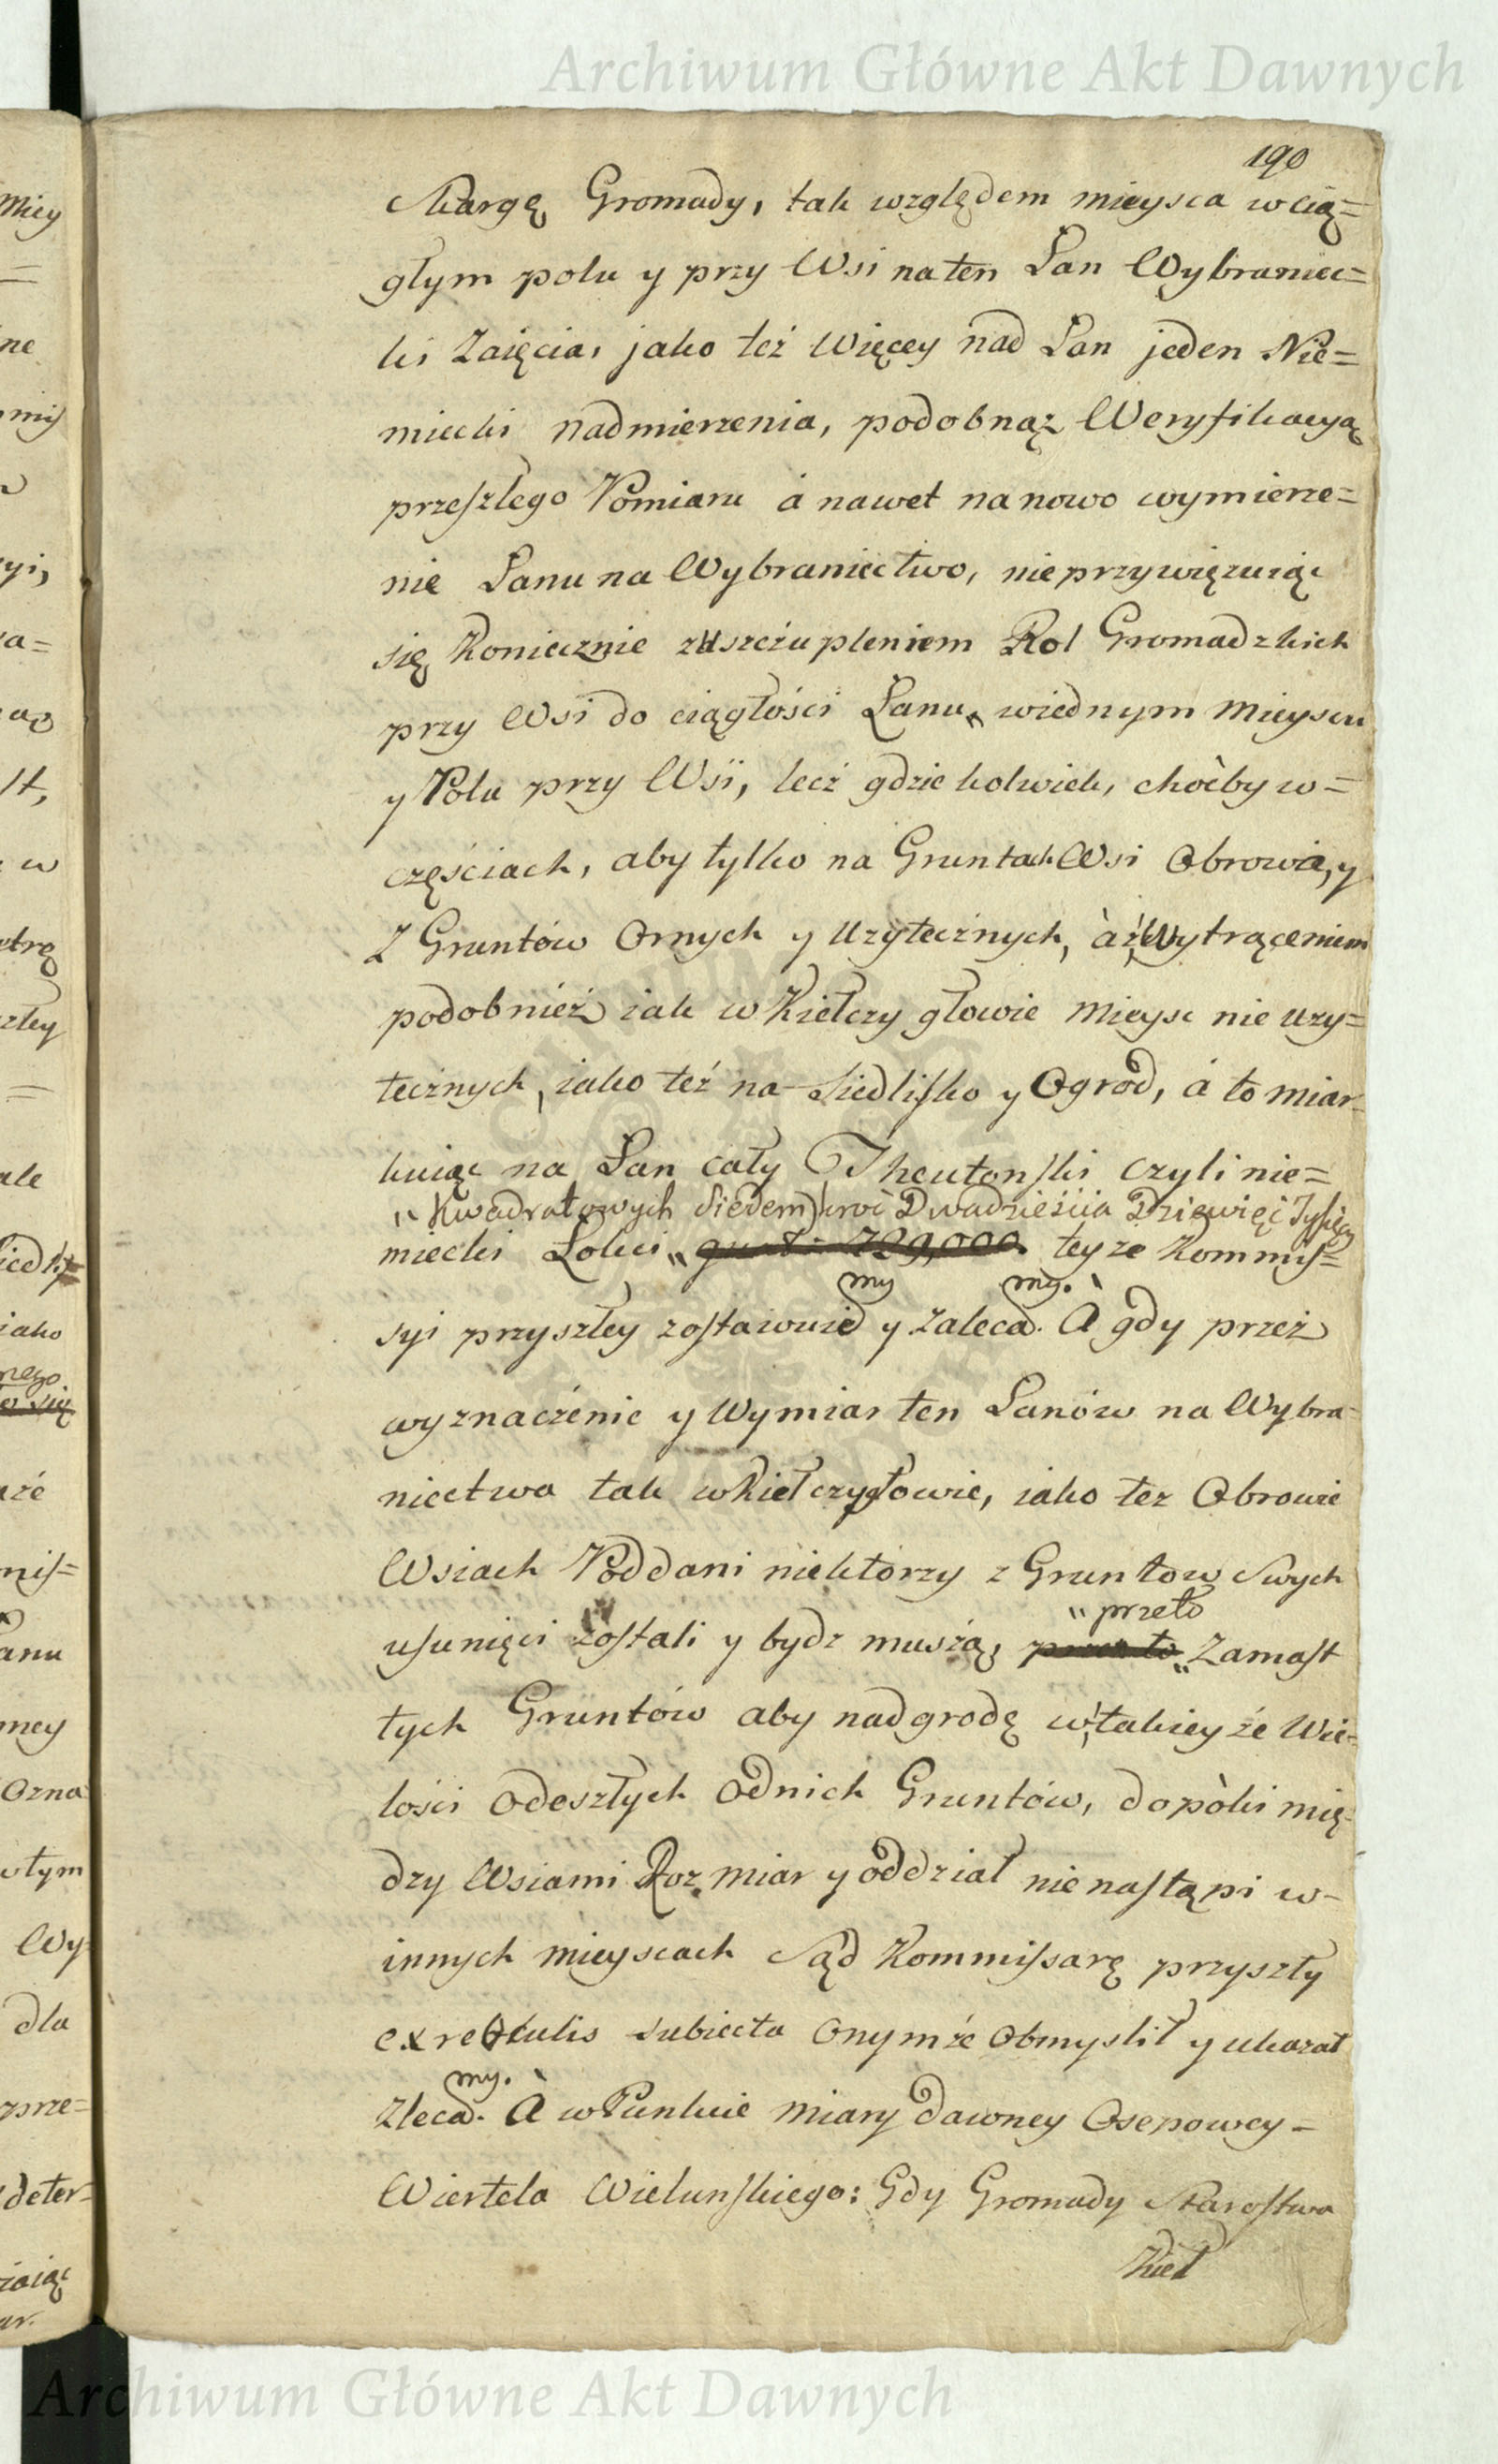 Archiwum Główne Akt Dawnych
190
Skargę Gromady, tak względem mieysca w cią=
głym polu y przy Wsi na ten Łan Wybraniec=
ki Zaięcia, jako też Więcey nad Łan jeden Nie=
miecki nadmierzenia, podobnąż Weryfikacyą
przeszłego Pomiaru á nawet na nowo wymierze=
nie Łanu na Wybraniectwo, nie przywięzuiąc
się Koniecznie z uszczupleniem Rol Gromadzkich
przy Wsi do ciągłości Łanu „ wiednym Mieyscu
y Polu przy Wsi, lecż gdziekolwiek, choćby w=
częściach, aby tylko na Gruntach Wsi Obrowa, y
Z Gruntów Ornych y Uzytecżnych, à z Wytrąceniem
podobnież iak w Kiełczygłowie Mieysc nie uzy=
tecżnych, iako też na Siedlisko y Ogrod, á to miar=
kuiąc na Łan cały Theutonski czyli nie=
„ Kwadratowych Siedemkroć Dwadzieścia Dziewięć Tysięcy
miecki Łokci „ 729,000 teyze Kommis=
my my.
syi przyszłey zostawuie y Zaleca. À gdy przeż
wyznacżenie y Wymiar ten Łanów na Wybra=
niectwa tak w Kiełczygłowie, iako tez Obrowie
Wsiach Poddani niektorzy z Gruntow Swych
„ przeto
usunięci zostali y bydz muszą, przez to „ Zamast
tych Gruntów aby nadgrodę w takieyże Wie=
lości Odeszłych Odnich Gruntów, dopòki mię=
dzy Wsiami Rozmiar y oddział nie nastąpi w=
innych mieyscach Sąd Kommissarę przyszły
ex reticulis subiecta Onymże Obmyslił y ukazał
my.
Zleca. À w Punkcie miary dawney Osepowey=
Wiertela Wielunskiego: Gdy Gromady Starostwa
Kieł
Archiwum Główne Akt Dawnych